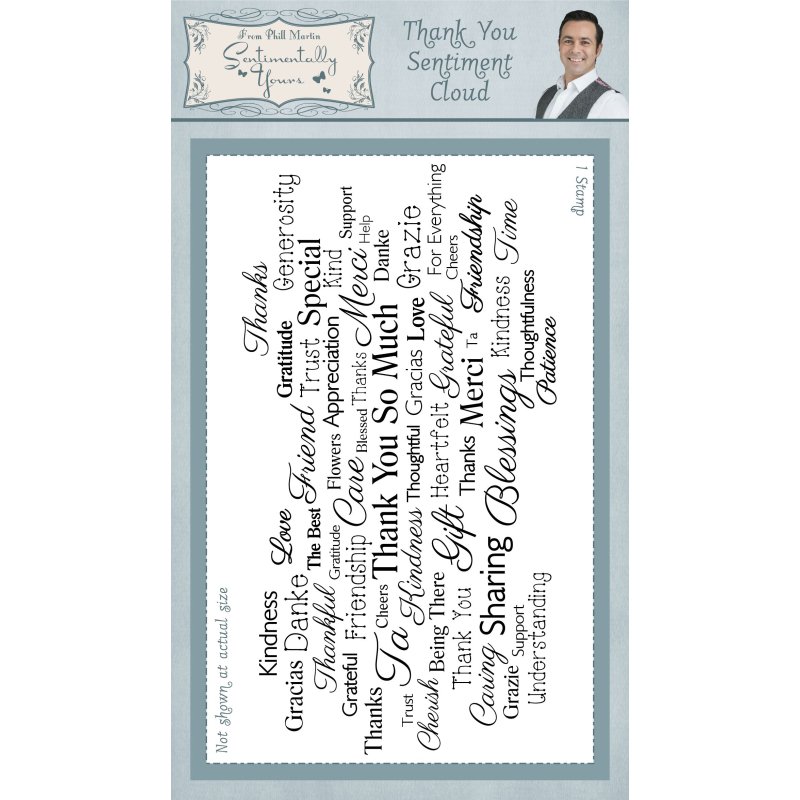 From Phill Martin
Sentimentally
Yours
Thank You
Sentiment
Cloud
1 Stamp
Not shown at actual size
Thanks
Generosity
Kindness Love Gratitude Special Support
Gracias Danke The Best Friend Trust Kind Help
Thankful Gratitude Flowers Appreciation Merci Danke
Grateful Friendship Care Blessed Thanks
Thanks Cheers Thank You So Much Grazie
Trust Ta Kindness Thoughtful Gracias Love For Everything
Cherish Being There Heartfelt Grateful Cheers
Thank You Gift Thanks Merci Ta Friendship
Caring Sharing Blessings Kindness Time
Grazie Support Thoughtfulness
Understanding Patience